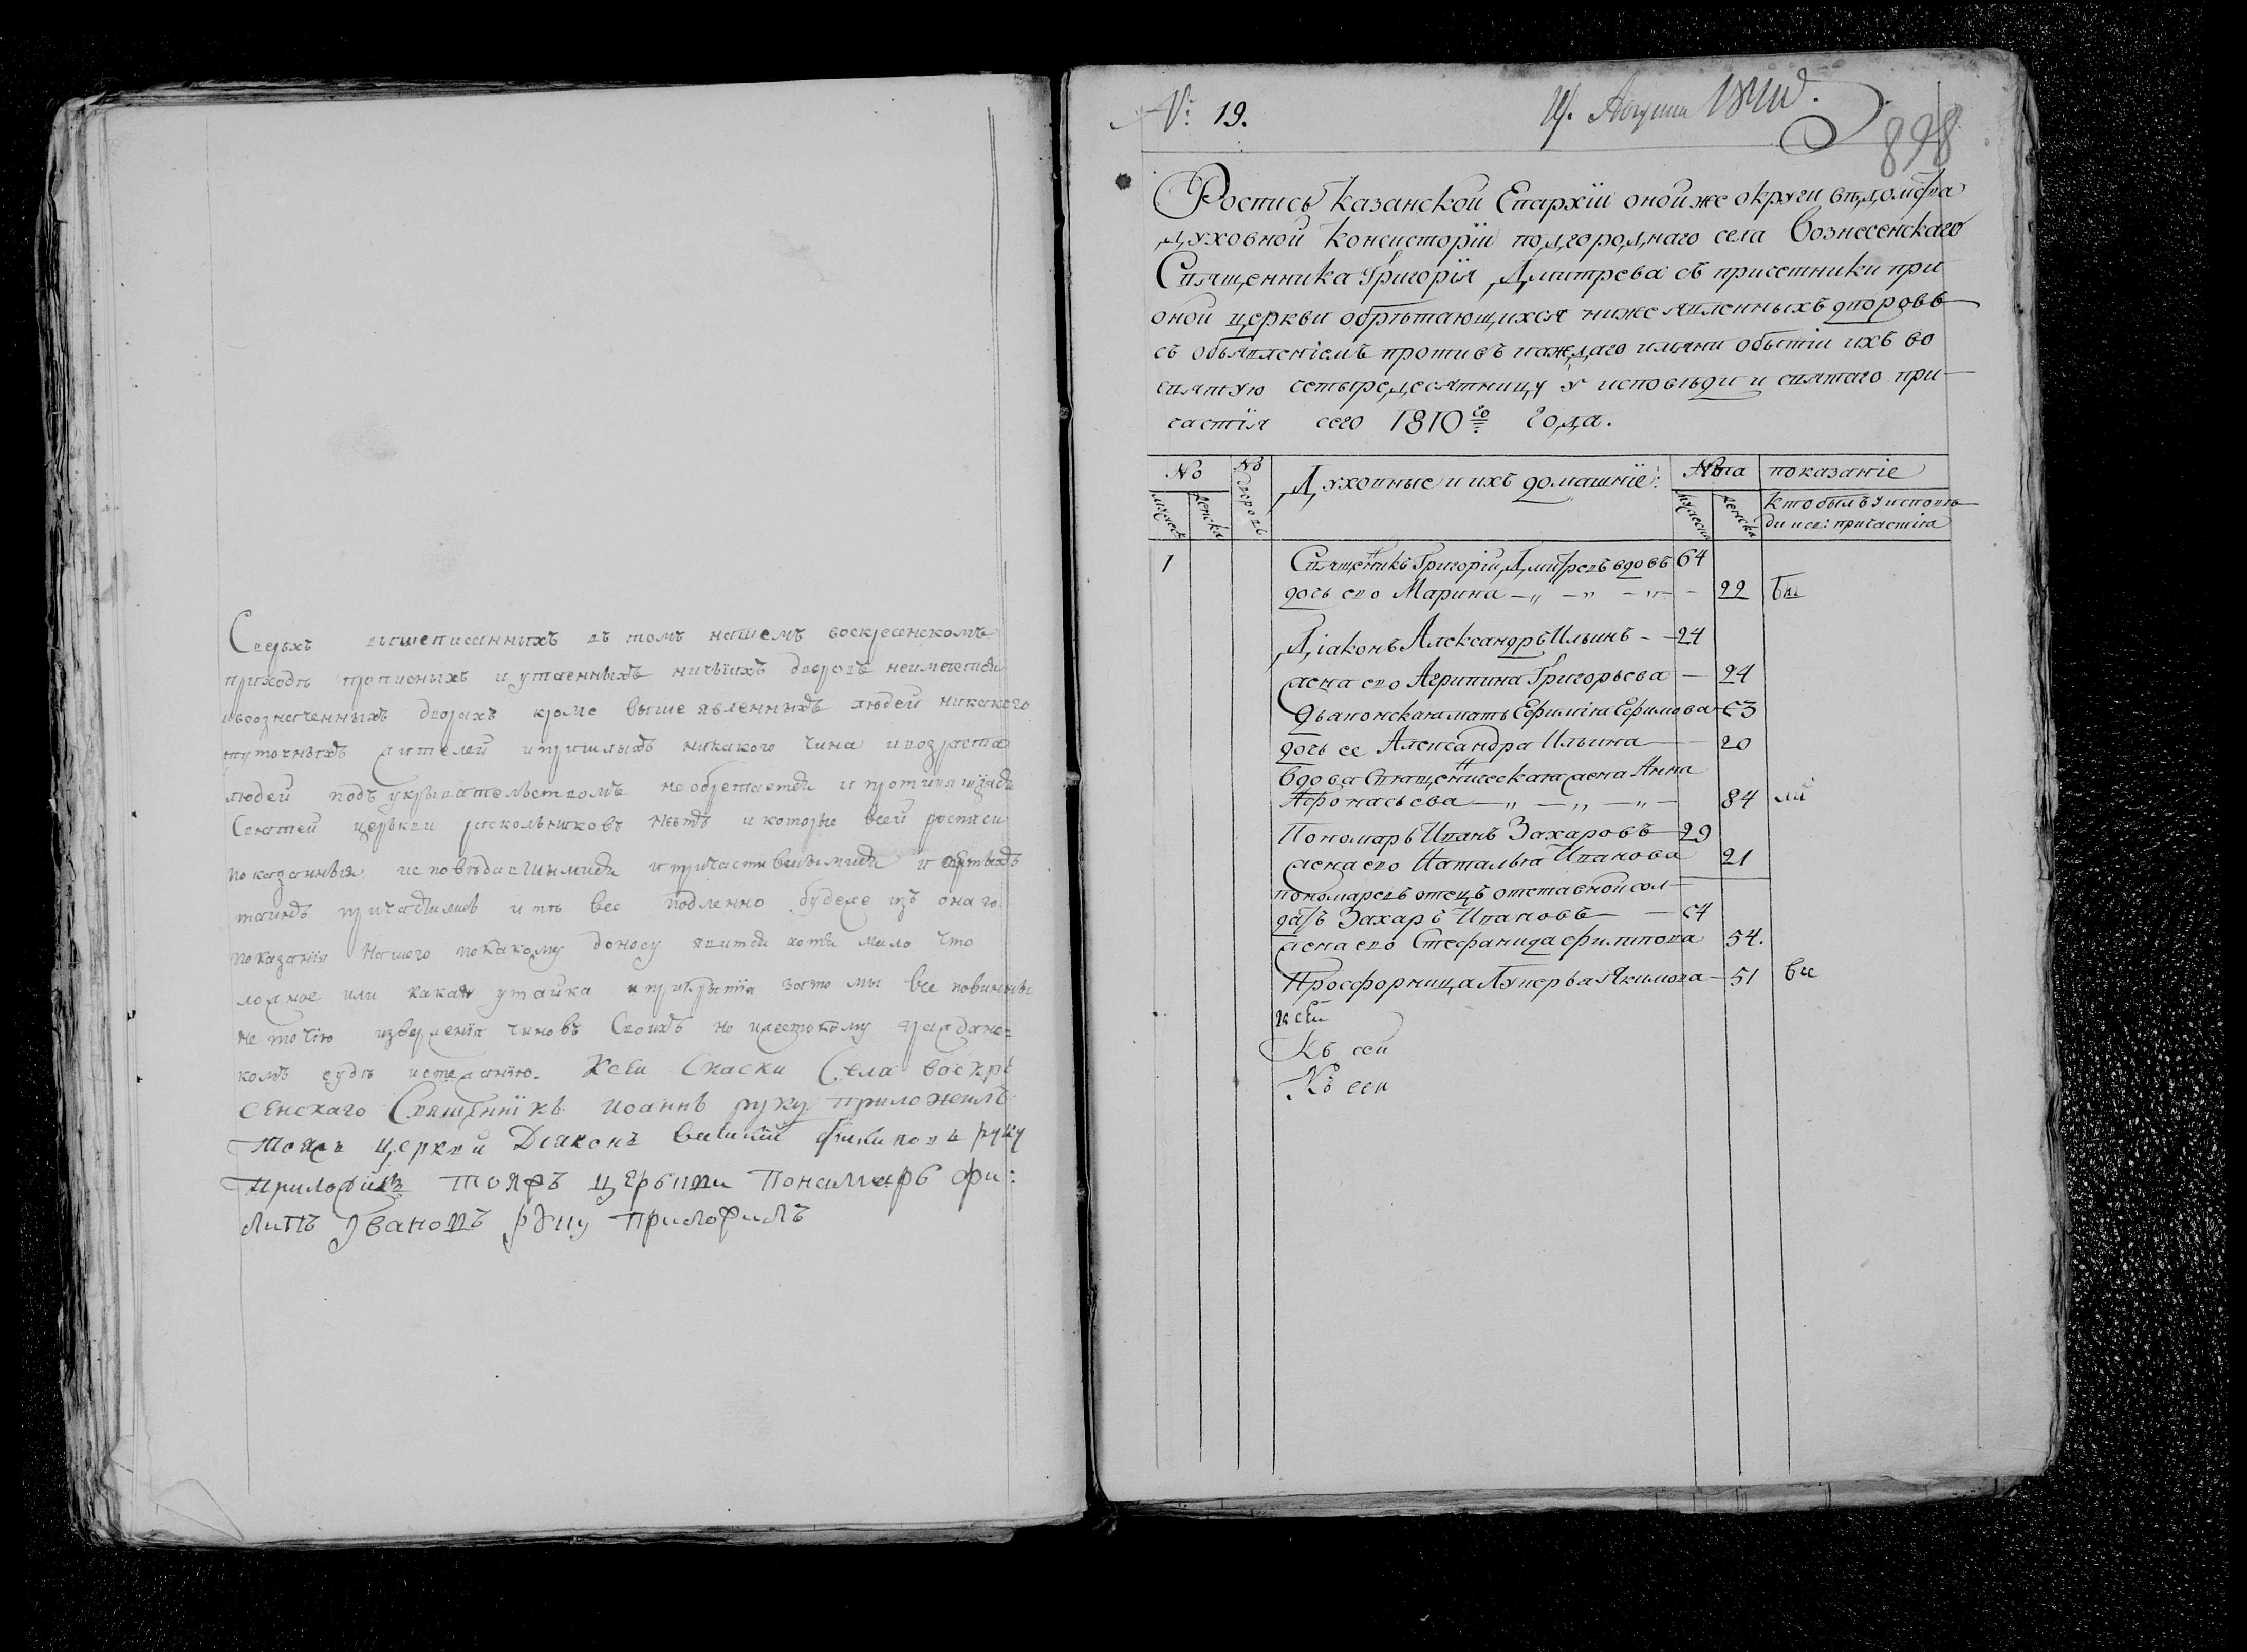 Сверхъ вышеписанныхъ въ томъ нашемъ воскресенскомъ
приходѣ прописныхъ и утаенныхъ ничьихъ дворовъ неимеется
ивоозначенныхъ дворахъ кроме выше явленныхъ людей никакого
жителей ипришлыхъ никакого чина ивозраста
людей подъ укрывательствомъ необретается и противящихся
Святей церькви раскольниковъ нѣтъ и которые всей росписи
показанныя исповѣдавшимися ипричастившимися и
таинъ причастились и то все подленно будеже изъ онаго
показания нашего покакому доносу явится хотя мало что
ложное или какая утайка иприкрытия зато мы все повинны
не точїю извержения чиновъ Своихъ но ижестокому граждане-
комъ судѣ истязанїю. Ксеи Скаски Села воскре
сенскаго Священникъ иоаннъ руку приложилъ
тояжъ церкви Дсиаконъ василий филиповъ руку
приложилъ тояжъ церькви Пономарь фи:
липъ Ивановъ руку приложилъ
№: 19.
898
Роспись Казанской Епархїи онойже округи вѣдомства
духовной Консисторїи подгороднаго села Вознесенскаго
Священника Григорїя Дмитрева съ причетники при
оной церкви обрѣтающихся нижеявленныхъ дворовъ
съ объявленїемъ противъ каждаго имяни обытїи ихъ во
святую четыредесятницу у исповѣди и святаго при-
частїя сего 1810го года.
№ № дворовъ Духовные и ихъ домашнїе: Лѣта показанїе
мужеска женска мужеска женска Кто былъ у исповѣ-
ди и св: причастїя
1 Священникъ Григорїи Дмитревъ вдовъ 64
дочь его Марина 22
Дїаконъ Александръ Ильинъ 24
жена его Агрипина Григорьева 24
Дьяконская мать Ефимїя Ефимова 63
дочь ее Александра Ильина 20
Вдова Священническая жена Анна
Афонасьева 84
Пономарь Иванъ Захаровъ 29
жена его Наталья Иванова 21
пономаревъ отецъ отставной сол-
датъ Захаръ Ивановъ 64
жена его Стефанида филипова 54.
Просфорница Лукерья Якимова 51
Къ сеи
Къ сеи
Къ сеи